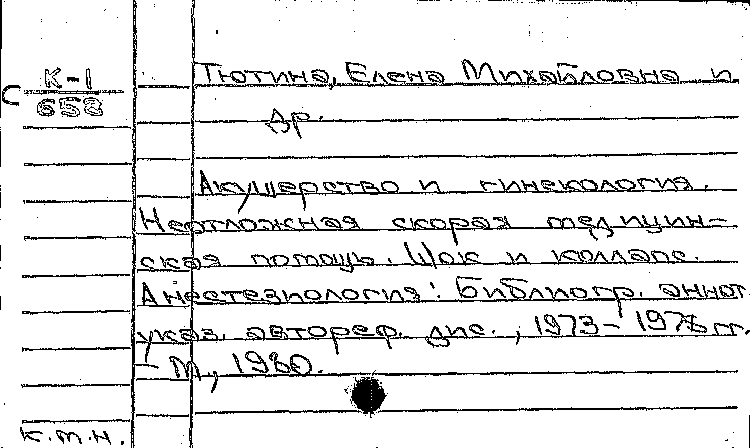 К-1
658
С
Тютина, Елена Михайловна и
др.
Акушерство и гинекология.
Неотложная скорая медицин-
ская помощь. Шок и коллапс.
Анестезиология: Библиогр. аннот.
указ. автореф. дис., 1973-1978 гг.
- М., 1980.
к.м.н.